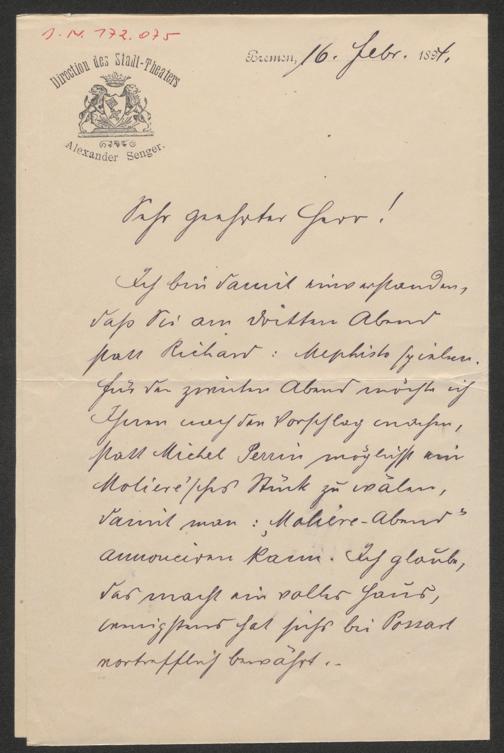 J. N. 172.075
Direction des Stadt-Theaters
Alexander Senger.
Bremen, 16. Febr. 1894.
Sehr geehrter Herr!
Ich bin damit einverstanden,
daß Sie am dritten Abend
statt Richard: Mephisto spielen.
Für den zweiten Abend möchte ich
Ihnen noch den Vorschlag machen,
statt Michel Perrin möglichst ein
Molière'sches Stück zu wälen,
damit man: „Molière-Abend"
annonciren kann. Ich glaube,
das macht ein volles Haus,
wenigstens hat sichs bei Possart
vortrefflich bewährt.